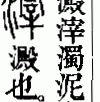 澱滓濁泥
滓澱也。